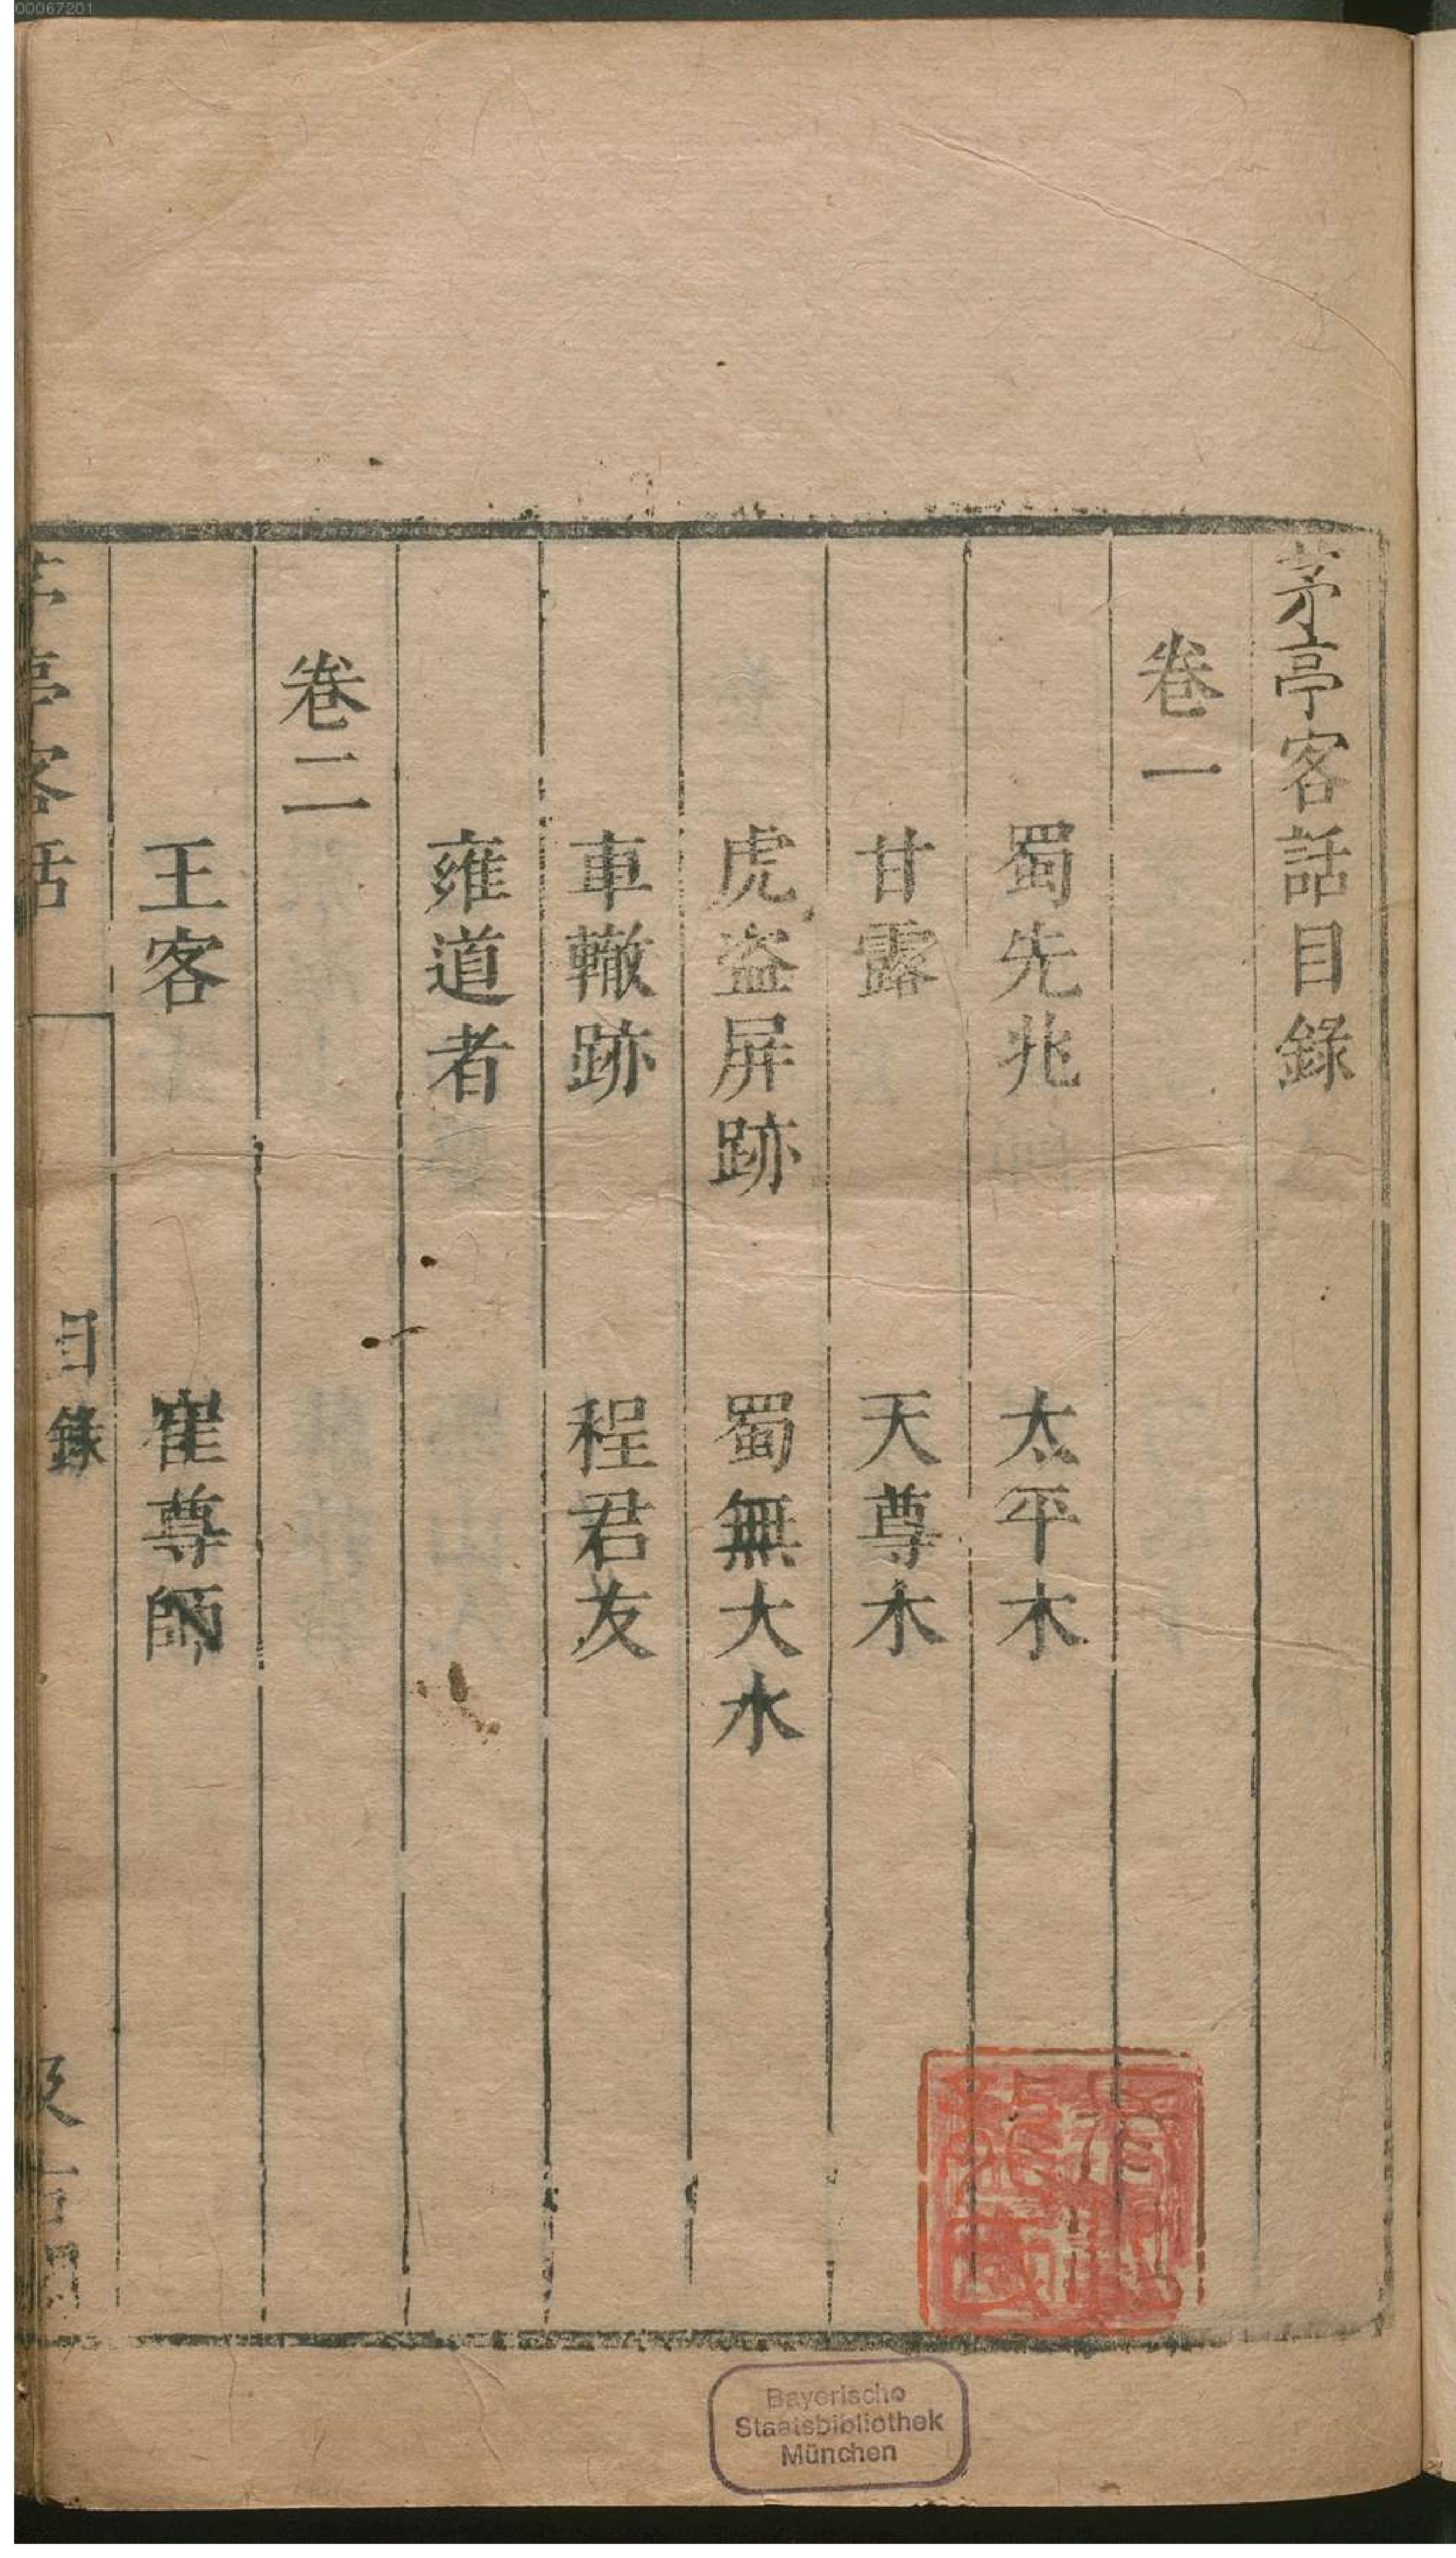 00067201
茅亭客話目錄
卷一
蜀先兆 太平木
甘露 天尊木
虎盗屏跡 蜀無大水
車轍跡 程君友
雍道者
卷二
王客 崔尊師
亭客話 目錄
Bayerische
Staatsbibliothek
München